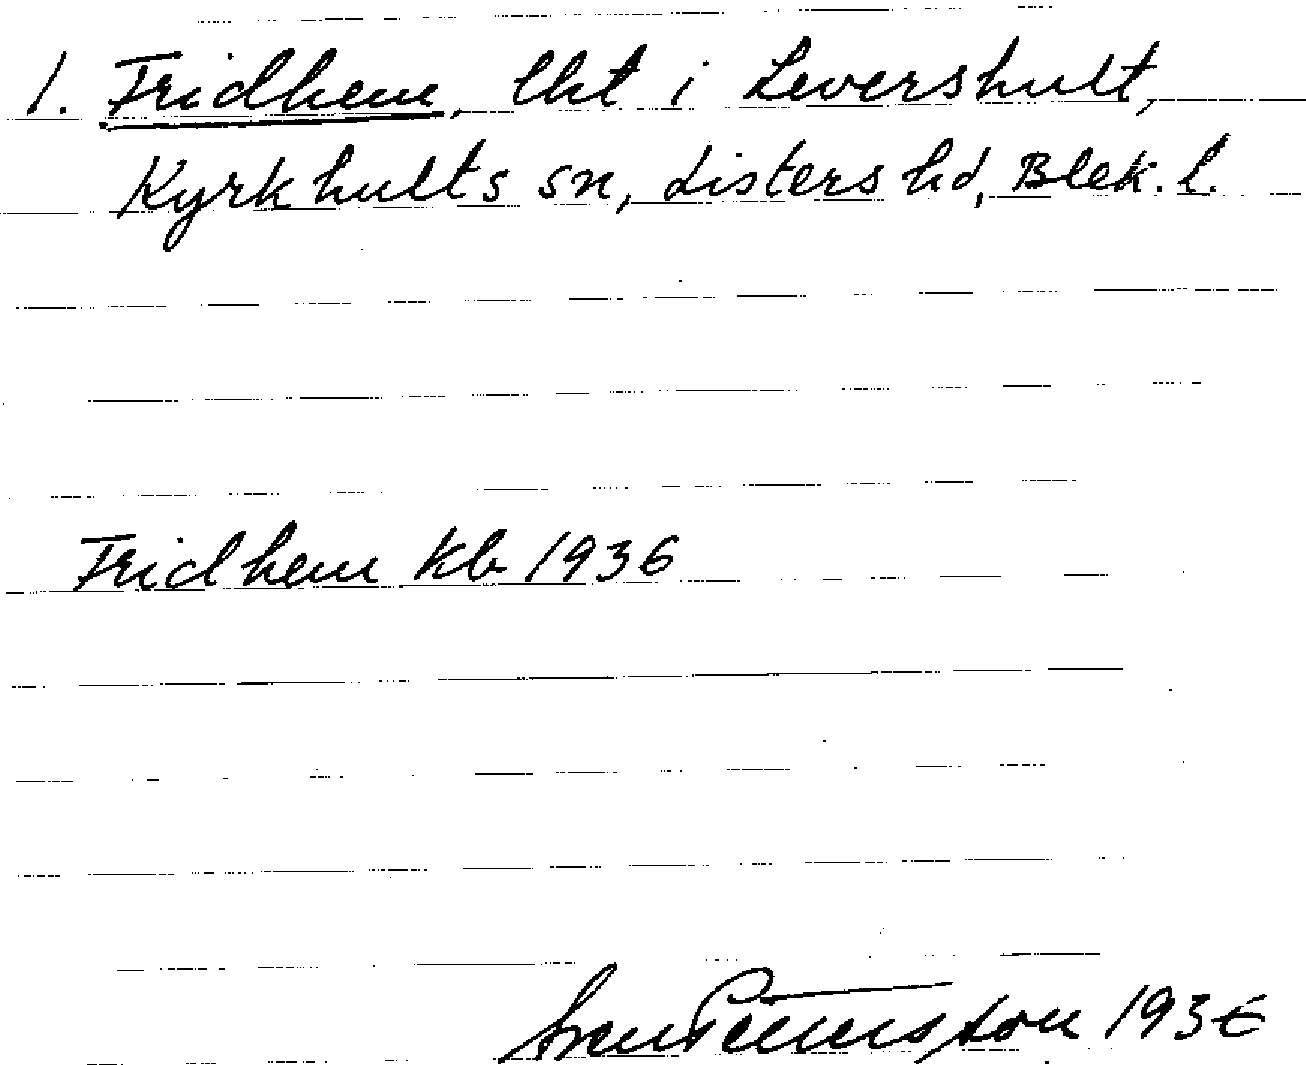 1. Fridhem, lht i Levershult,
Kyrkhults sn, Listers hd, Blek. l.
Fridhem Kb 1936
Sven Pettersson 1936